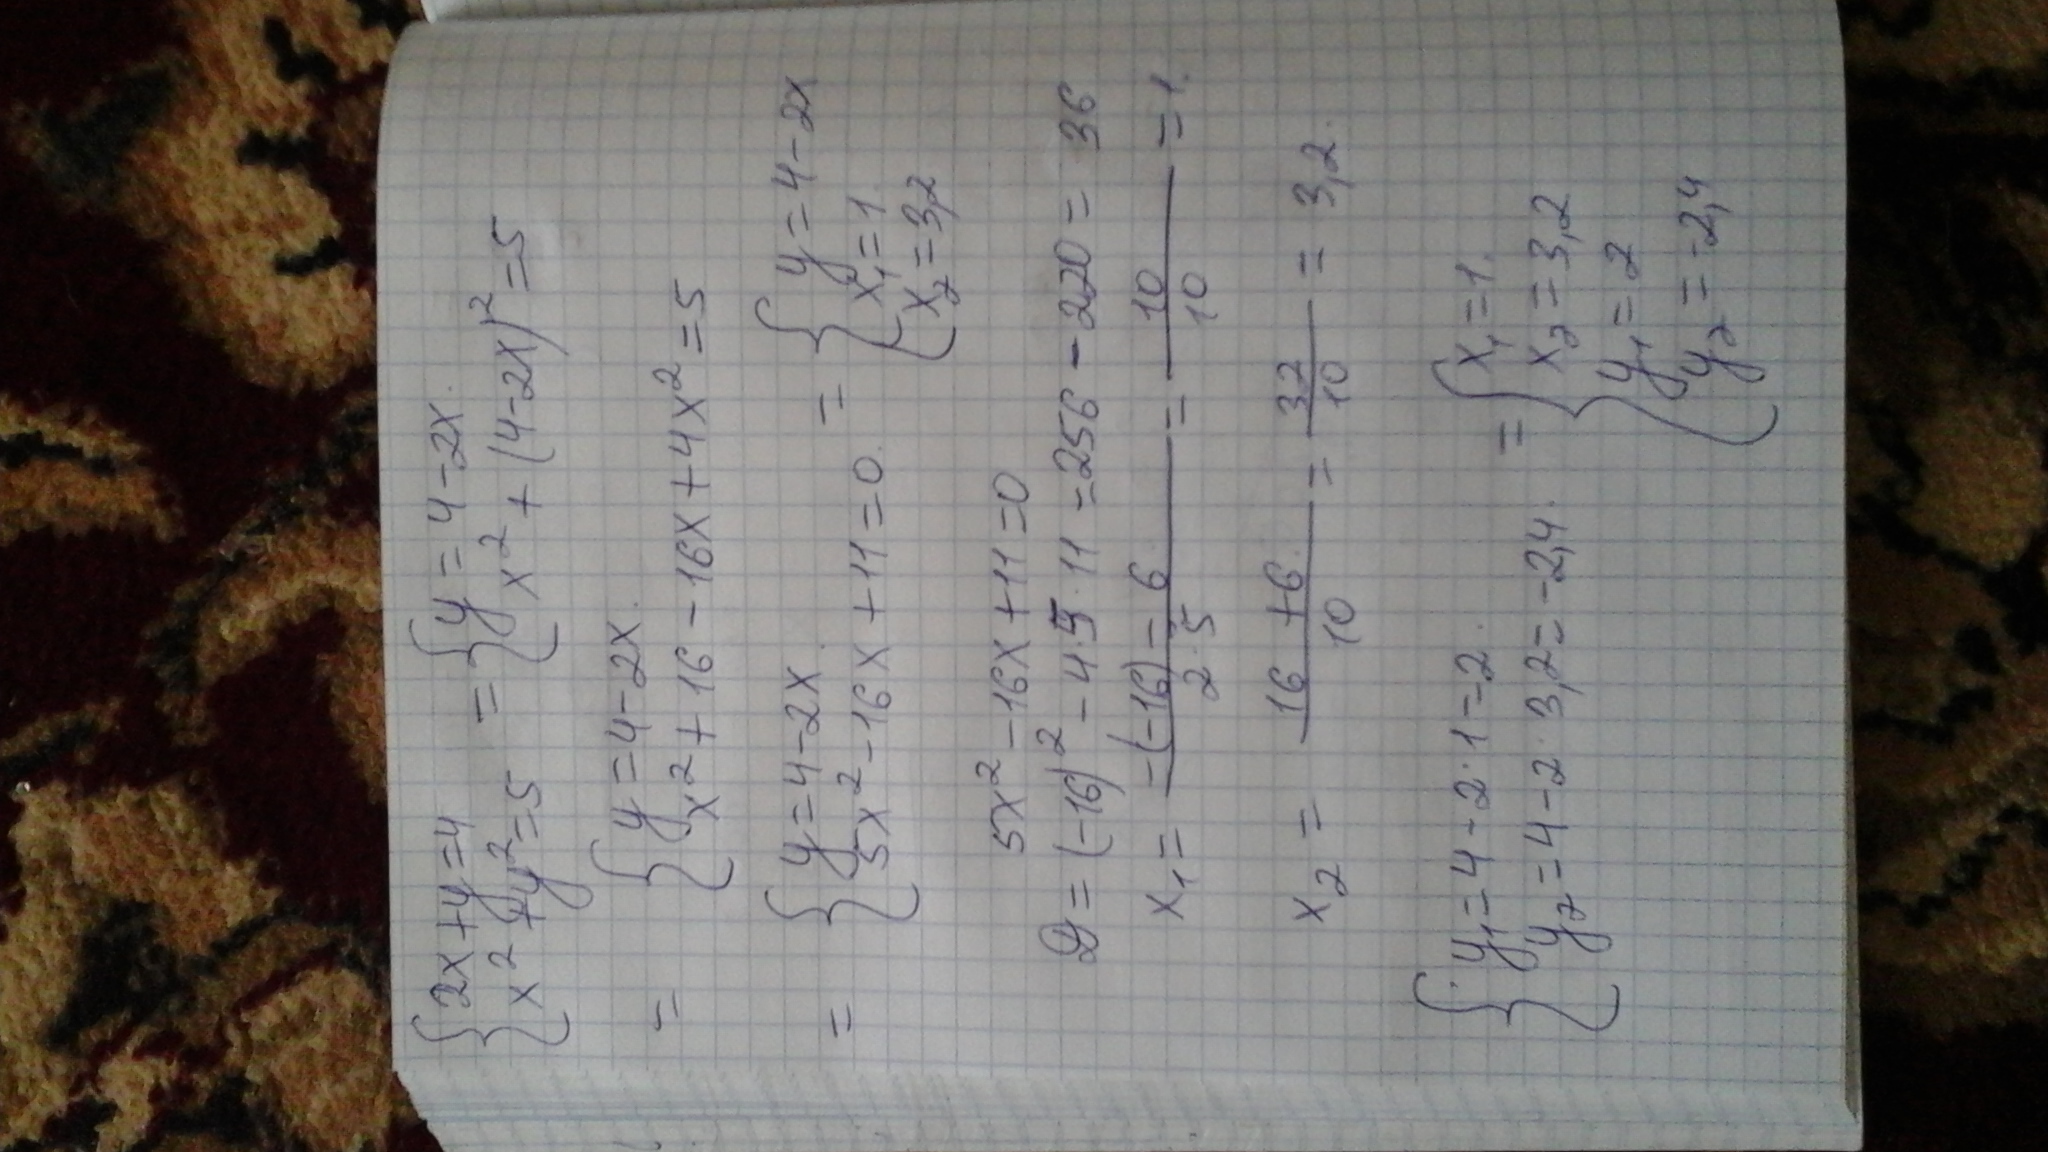 {2x+y=4 = {y=4-2x.
{x²+y²=5 {x²+(4-2x)²=5
= {y=4-2x.
{x²+16-16x+4x²=5
= {y=4-2x. = {y=4-2x
{5x²-16x+11=0. {x₁=1.
{x₂=3,2
5x²-16x+11=0
D=(-16)²-4·5·11=256-220=36
x₁= (-(-16)-6)/(2·5) = 10/10 = 1.
x₂= (16+6)/10 = 32/10 = 3,2.
{y₁=4-2·1=2. = {x₁=1.
{y₂=4-2·3,2=-2,4. x₂=3,2
{y₁=2
y₂=-2,4